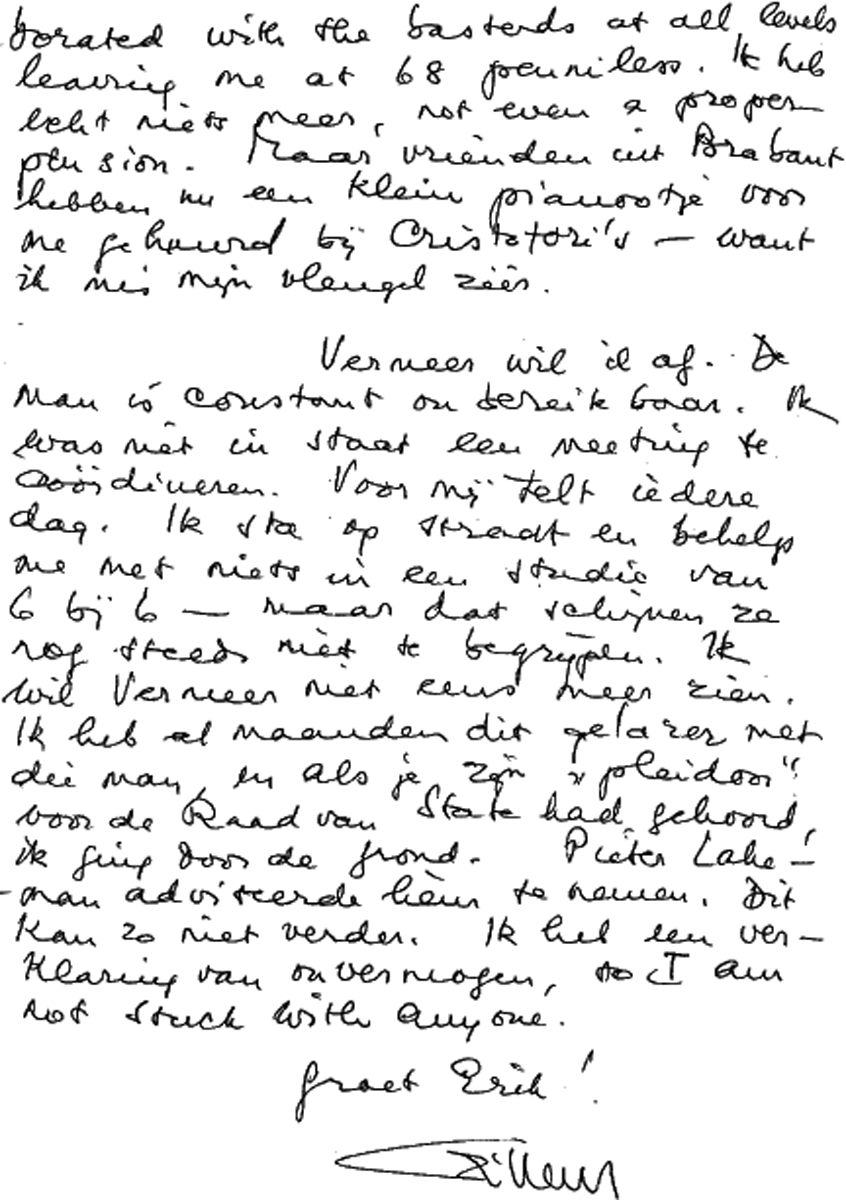 borated with the basterds at all levels
leaving me at 68 penniless. Ik heb
echt niets meer, not even a proper
pension. Maar vrienden uit Brabant
hebben nu een klein pianootje voor
me gehuurd bij Cristofori's — want
ik mis mijn vleugel zéér.
Vermeer wil ik af. De
man is constant onbereikbaar. Ik
was niet in staat een meeting te
coördineren. Voor mij telt iedere
dag. Ik sta op straat en behelp
me met niets in een studio van
6 bij 6 — maar dat schijnen ze
nog steeds niet te begrijpen. Ik
wil Vermeer niet eens meer zien.
Ik heb al maanden dit gelazer met
die man, en als je zijn "pleidooi"
voor de Raad van State had gehoord,
ik ging door de grond. Pieter Lake-
man adviseerde hem te nemen. Dit
kan zo niet verder. Ik heb een ver-
klaring van onvermogen, so I am
not stuck with anyone.
Groet Erik!
Willem